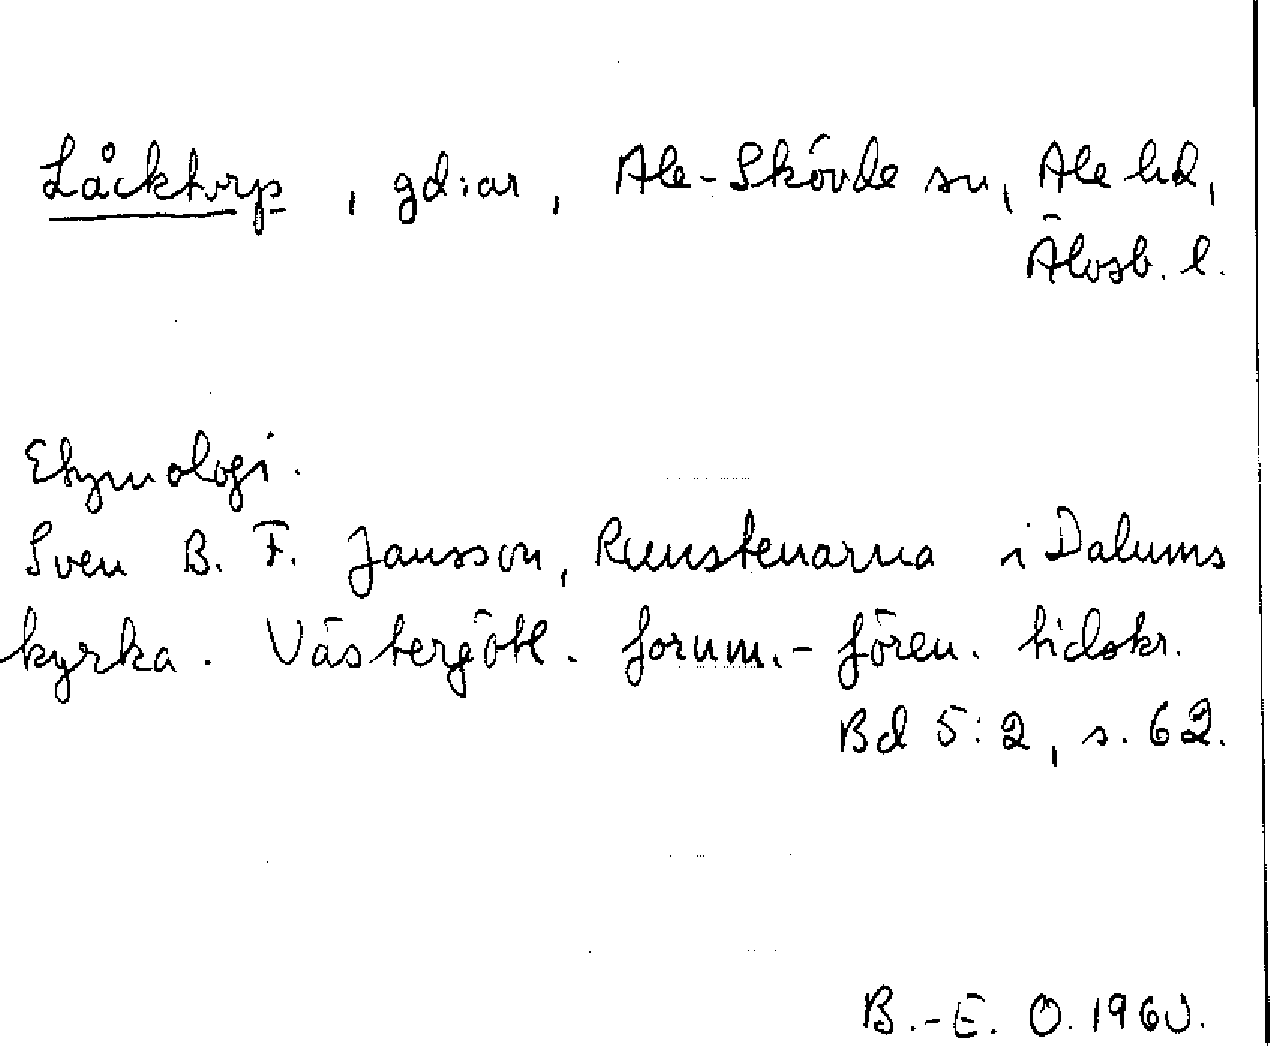 Låcktorp, gd:ar, Ale-Skövde sn, Ale hd,
Älvsb. l.
Etymologi.
Sven B. F. Jansson, Runstenarna i Dalums
kyrka. Västergötl. fornm.-fören. tidskr.
Bd 5:2, s. 62.
B.-E. O. 1960.